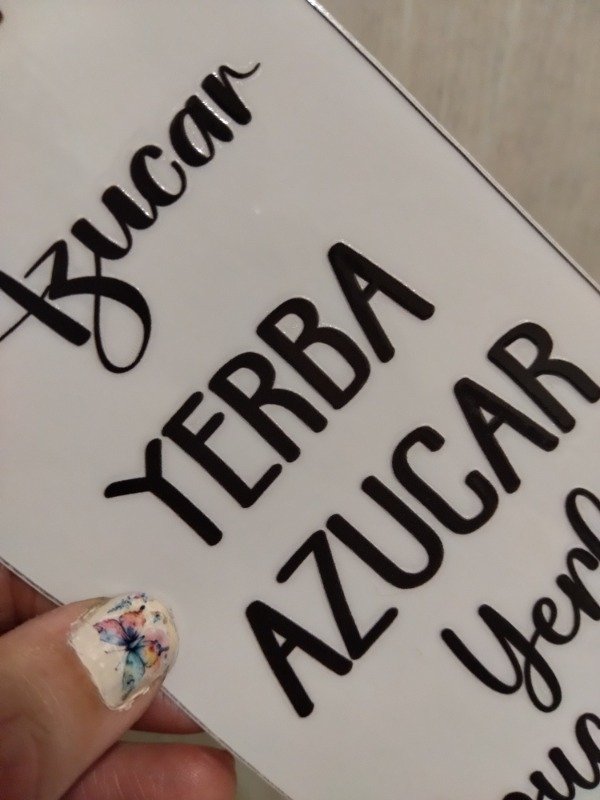 Azucar
YERBA
AZUCAR